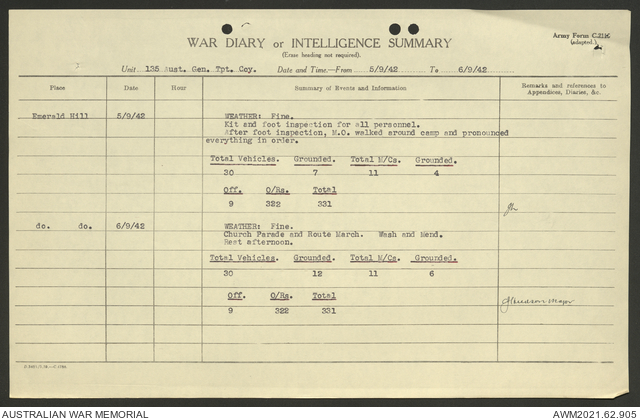 WAR DIARY or INTELLIGENCE SUMMARY
(Erase heading not required).
Army Form C.2118
(adapted.)
Unit 135 Aust. Gen. Tpt. Coy. Date and Time—From 5/9/42 To 6/9/42
Place Date Hour Summary of Events and Information Remarks and references to Appendices, Diaries, &c.
Emerald Hill 5/9/42 WEATHER: Fine.
Kit and foot inspection for all personnel.
After foot inspection, M.O. walked around camp and pronounced
everything in order.
Total Vehicles. Grounded. Total M/Cs. Grounded.
30 7 11 4
Off. O/Rs. Total
9 322 331
do. do. 6/9/42 WEATHER: Fine.
Church Parade and Route March. Wash and Mend.
Rest afternoon.
Total Vehicles. Grounded. Total M/Cs. Grounded.
30 12 11 6
Off. O/Rs. Total
9 322 331
Major
AUSTRALIAN WAR MEMORIAL AWM2021.62.905